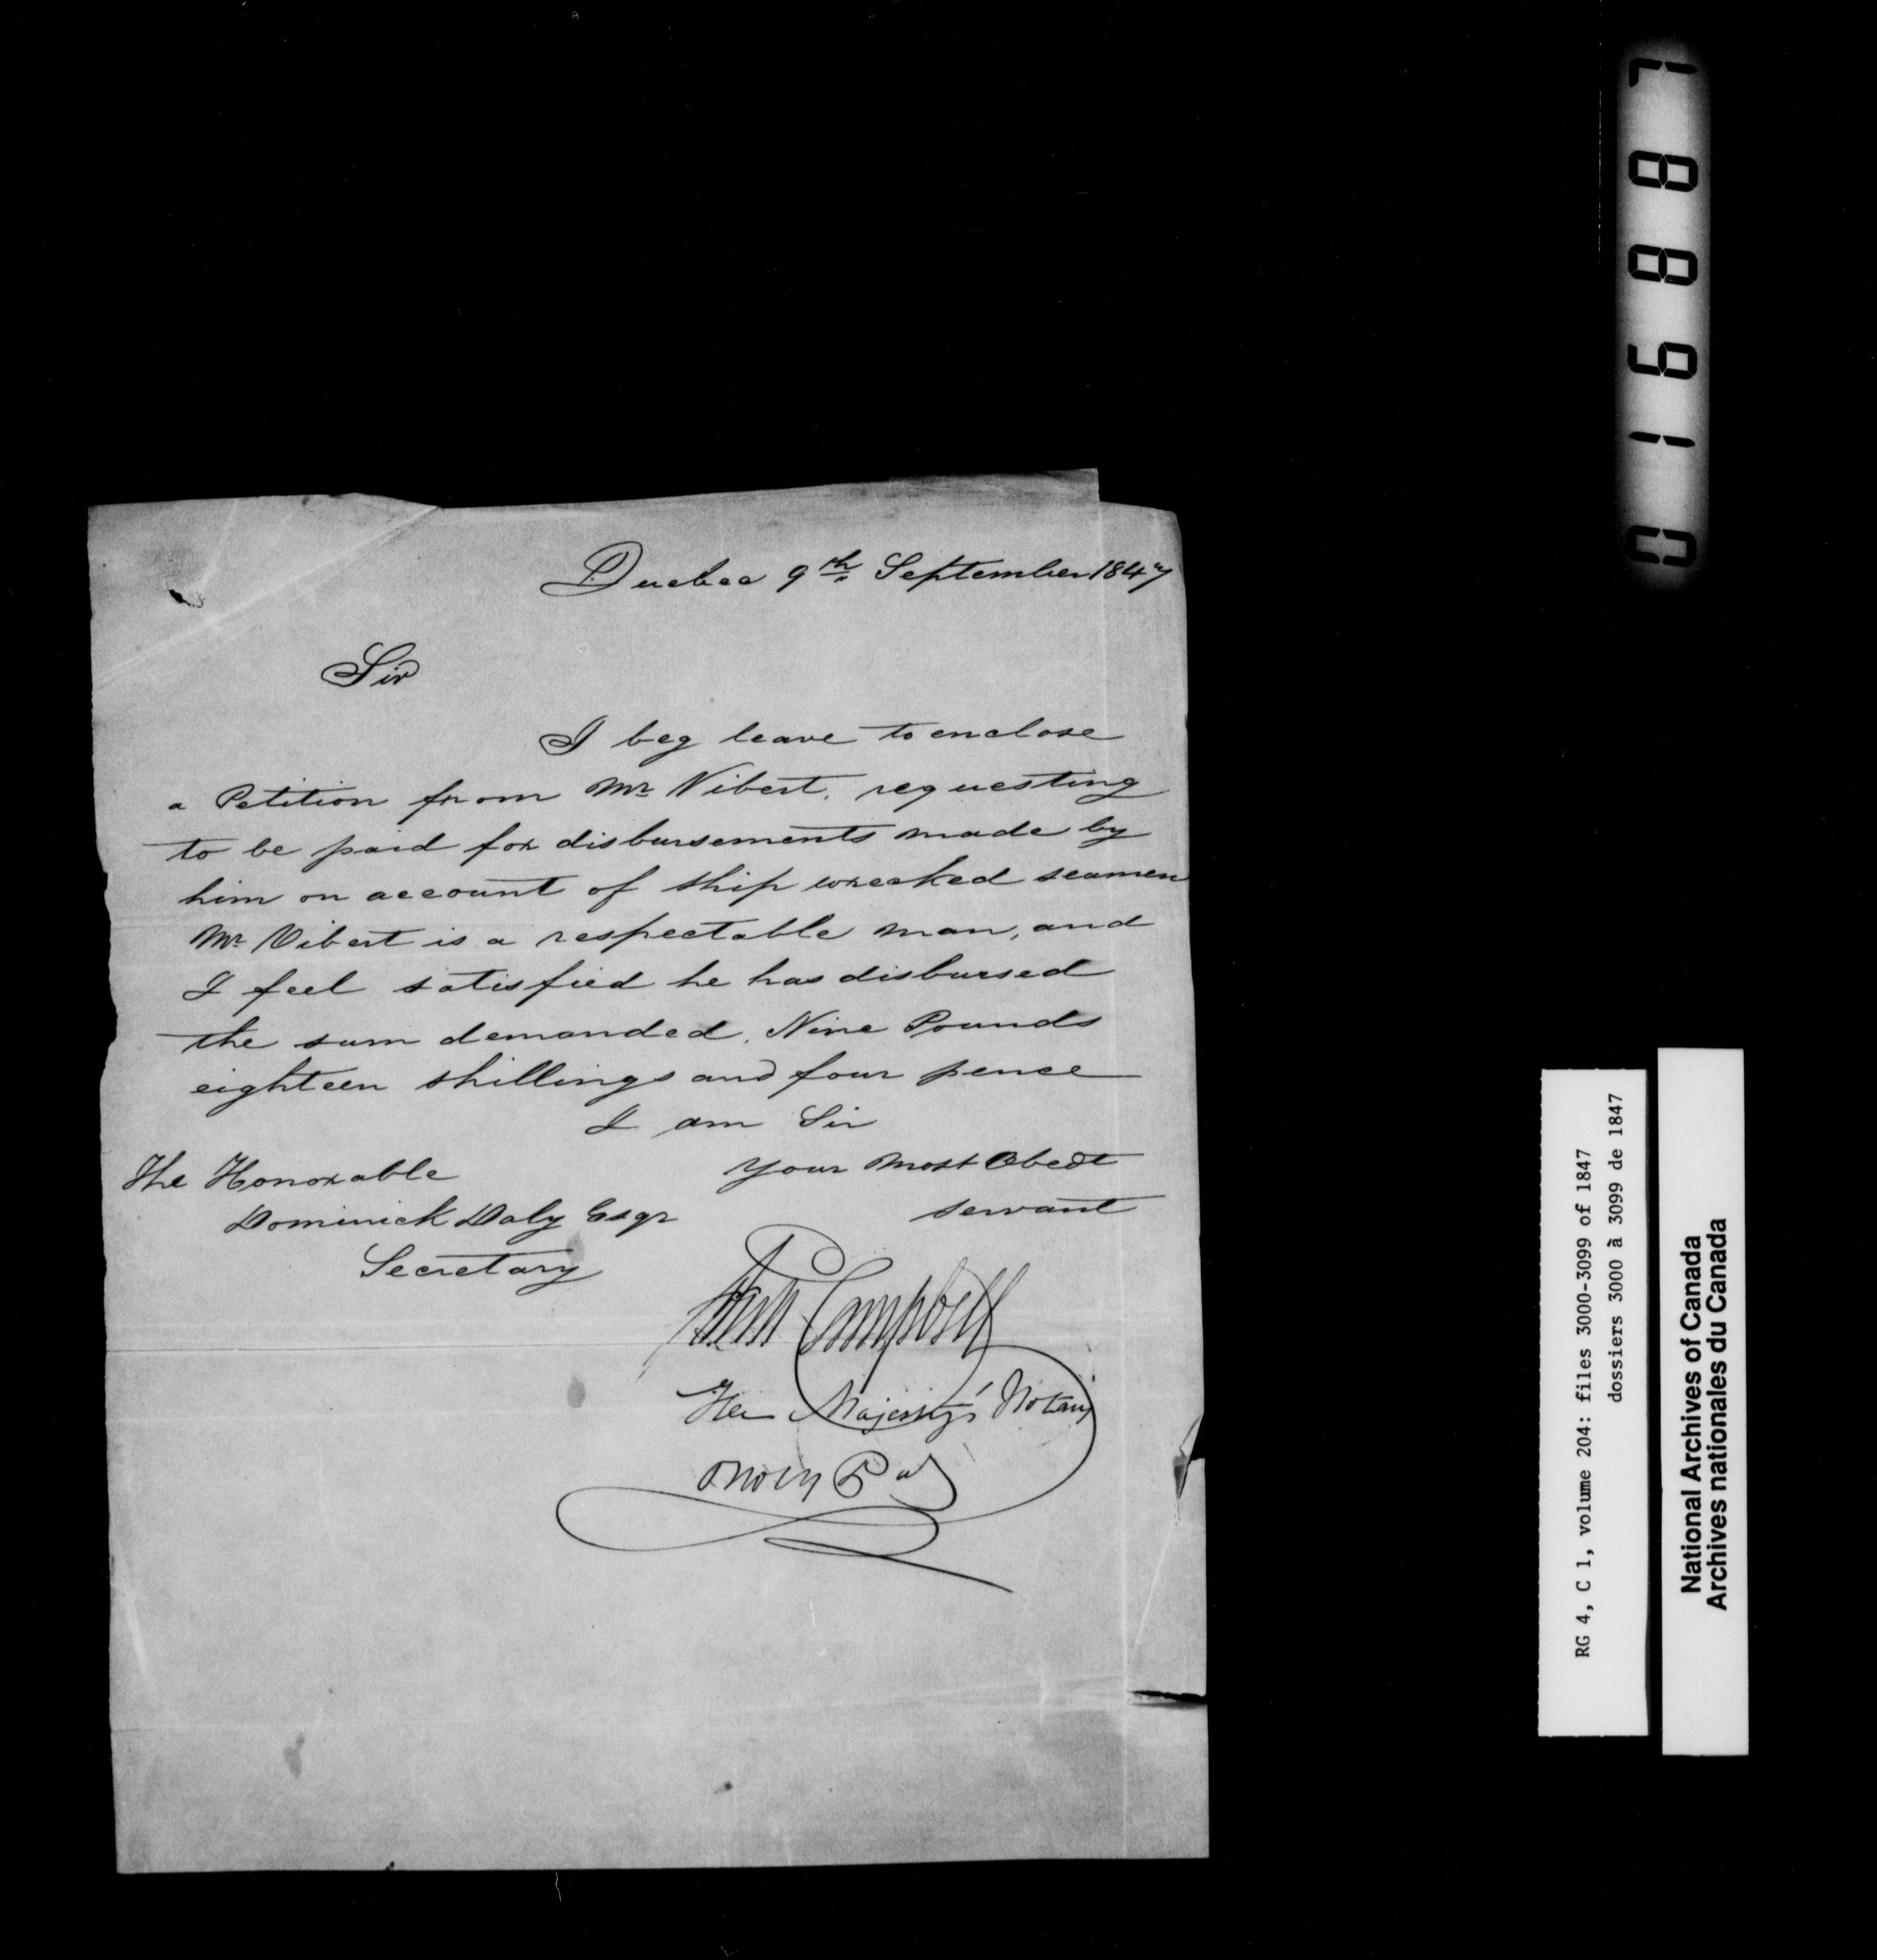 Quebec 9th September 1847
Sir
I beg leave to enclose
a Petition from Mr Vibert, requesting
to be paid for disbursements made by
him on account of ship wrecked seamen
Mr Vibert is a respectable man, and
I feel satisfied he has disbursed
the sum demanded, Nine Pounds
eighteen shillings and four pence
I am Sir
Your Most Obedt
servant
The Honorable
Dominick Daly Esqr
Secretary
Campbell
Her Majesty's Notary
016887
RG 4, C 1, volume 204: files 3000-3099 of 1847
dossiers 3000 à 3099 de 1847
National Archives of Canada
Archives nationales du Canada